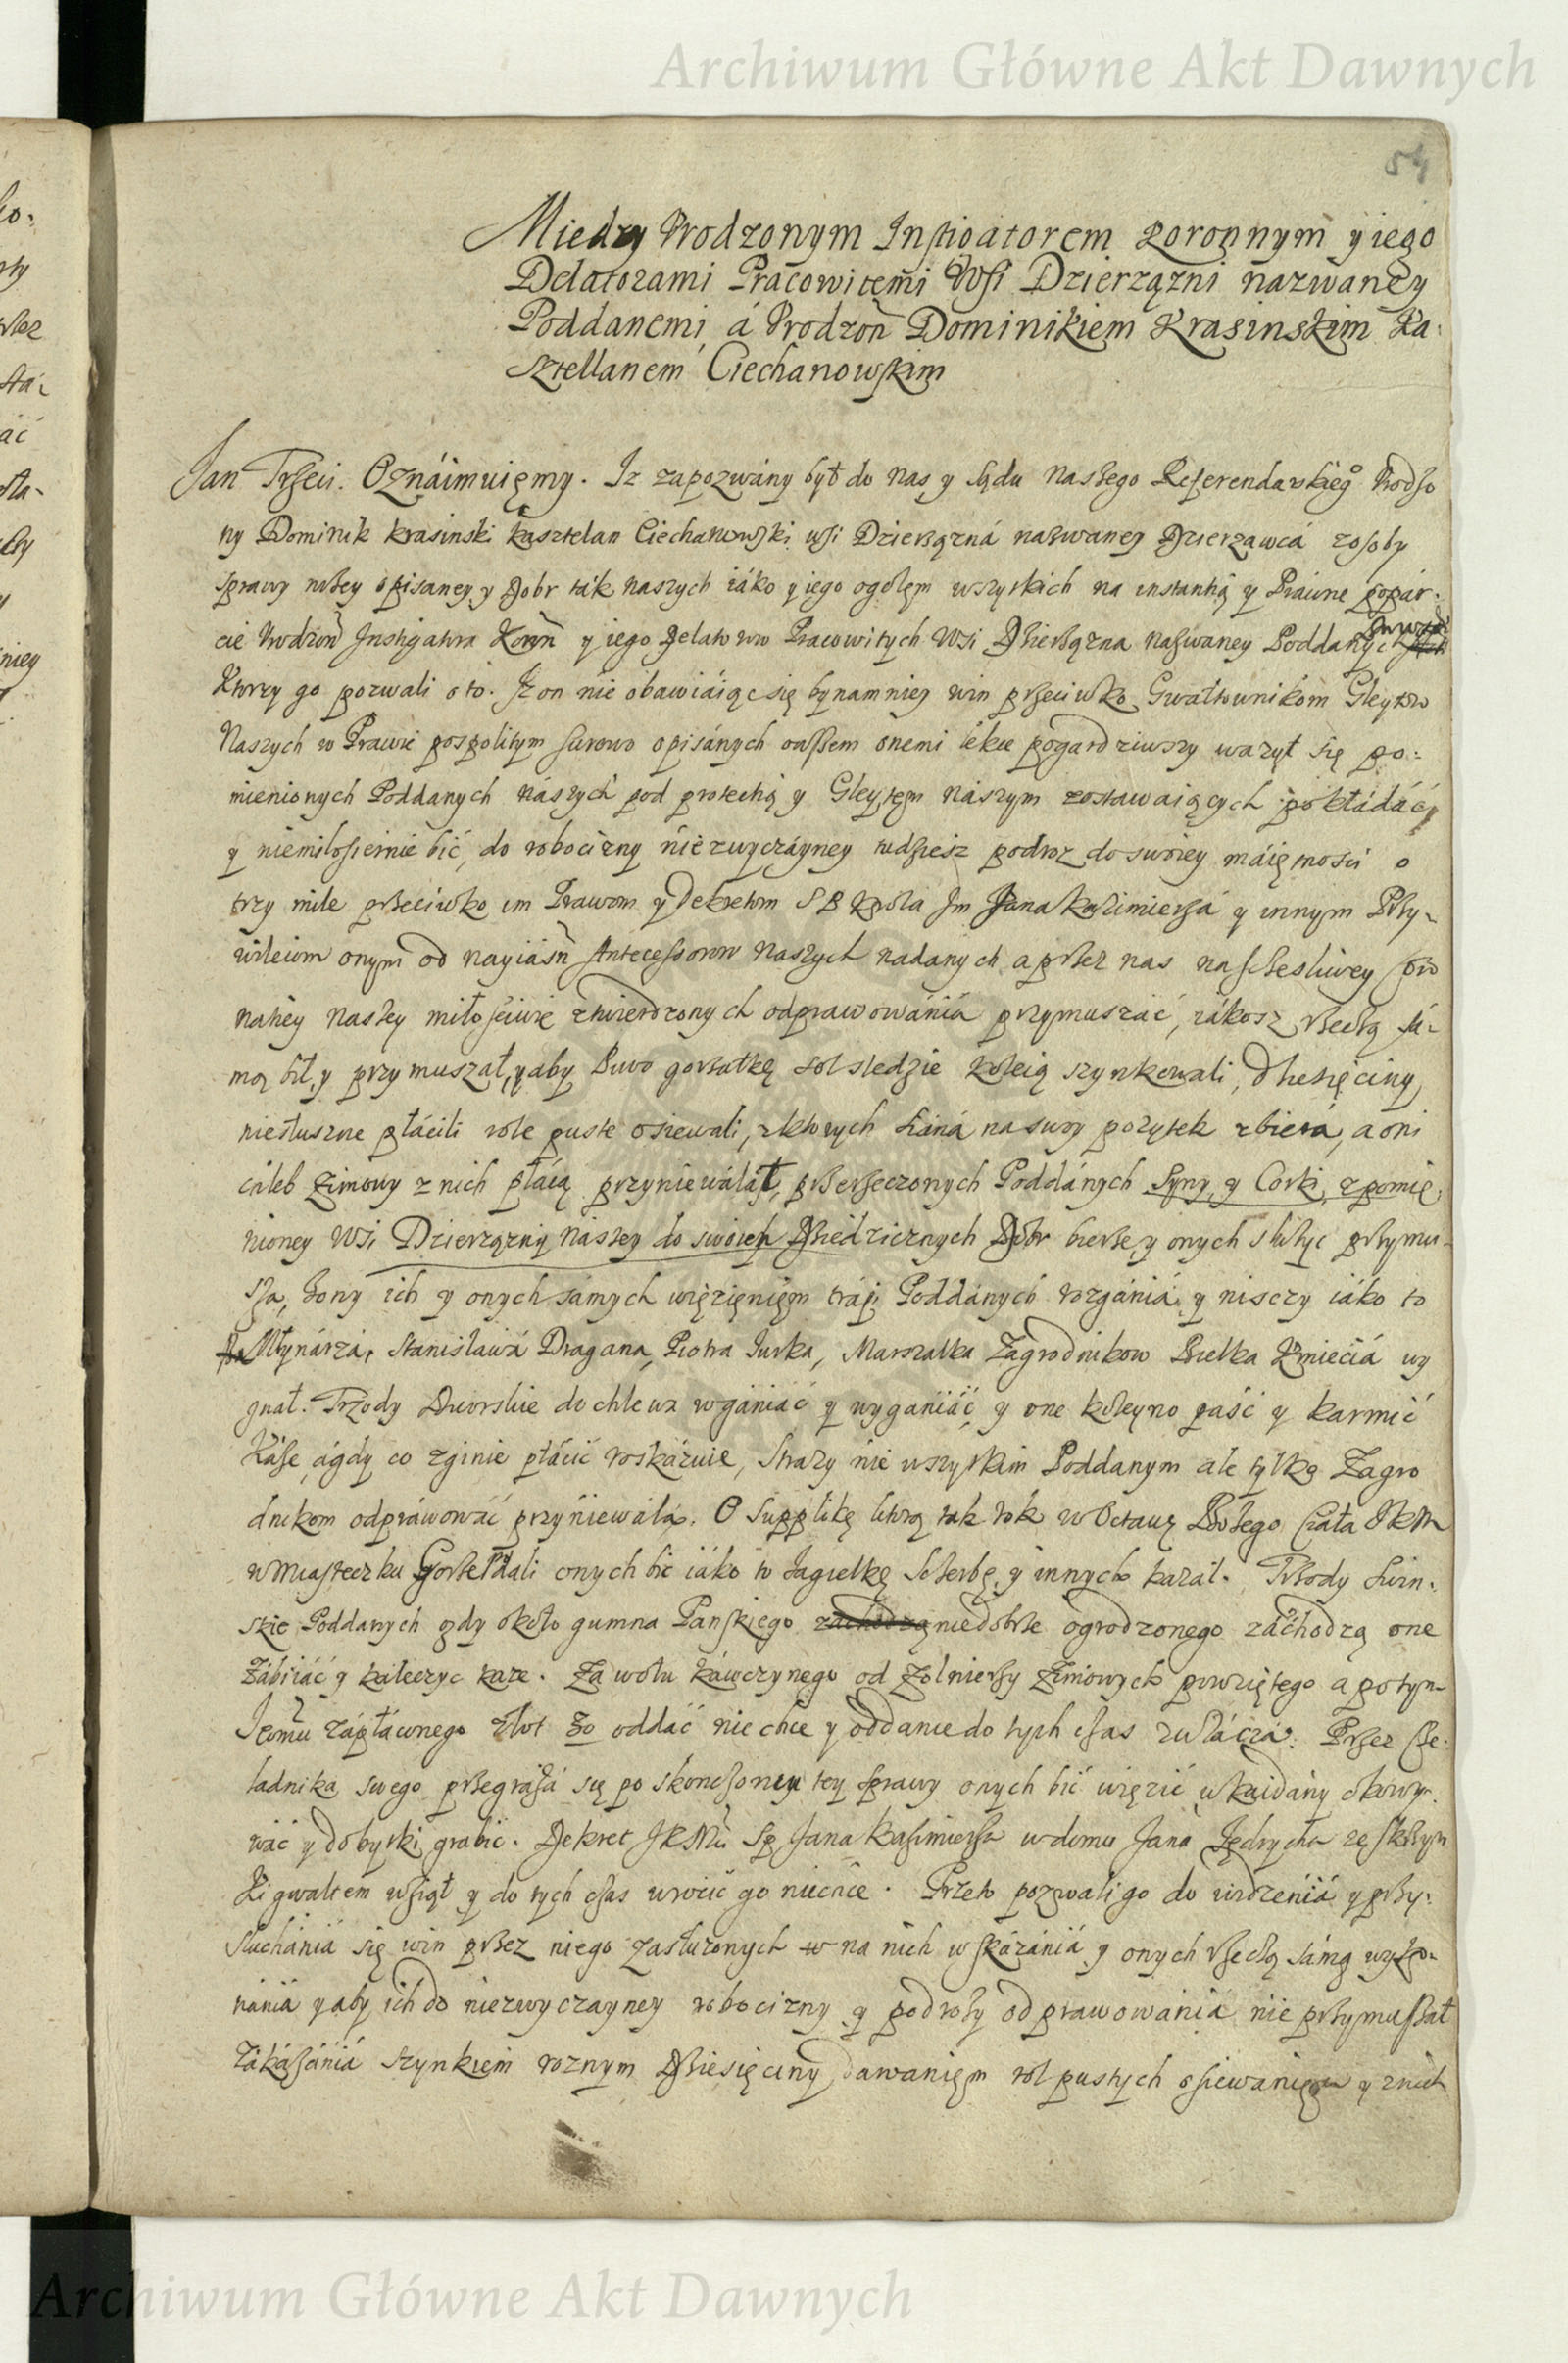 Archiwum Główne Akt Dawnych
54
Miedzy Vrodzonym Instigatorem Koronnym y iego
Delatorami Pracowitemi Wsi Dzierzązni nazwaney
Poddanemi, á Vrodzon Dominikiem Krasinskim Ka:
sztellanem Ciechanowskim
Jan Trzeci. Oznáimuięmy. Iz zapozwány był do nas y sądu naszego Referendarskieg Vrodzo
ny Dominik Krasinski Kasztelan Ciechanowski wsi Dzierzązná nazwaney Dzierzawcá zosoby
sprawy nizey opisaney y Dobr ták naszych iáko y iego ogołęm wszytkich na instantią y Práwne popár:
cie Vrodzon Instigatora Koron y iego Delatorow Pracowitych Wsi Dzierzązna nazwaney Poddanych
Ktorzy go pozwali o to. Iz on nie obawiáiąc się bynamniey win przeciwko Gwałtownikom Gleytow
Naszych w Prawie pospolitym surowo opisánych owszem onemi lekce pogardziwszy wazył się po:
mienionych Poddanych nászych pod protectią y Gleytęm nászym zostawaiących pokłádáć,
y niemiłosiernie bić, do robocizny niezwyczáyney tudziesz podroz do swoiey máiętnosci o
trzy mile przeciwko im Prawom y Dekretom SP Krola Jm Jana Kazimierzá y innym Przy-
wileiom onym od nayiásn Antecessorow naszych nadanych a przez nas na szczesliwey Coro
natiey naszey miłosciwie ztwierdzonych odprawowániá przymuszáć, iákosz rzeczą sá-
mą bił, y przymuszał, yaby Piwo gorzałkę sol sledzie koleią szynkowali, dziesięciny
niesłuszne płácili role puste osiewali, z ktorych siáná na swoy pozytek zbiera, a oni
chleb zimowy z nich płácą przyniewálał, przerzeczonych Poddánych Syny, y Corki, z pomię,
nioney Wsi Dzierząznij Naszey do swoich Dziedzicznych Dobr bierze y onych słuzyc przymu-
sza, zony ich y onych sámych więzięnięm trápi Poddánych rozgániá y nisczy iáko to
Młynárzá, Stanisławá Dragana, Piotra Jurka, Marszałka Zagrodnikow Bielka Kmieciá wy
gnał. Trzody Dworskie do chlewa wgániáć y wyganiáć, y one koleyno paść y karmić
káże, ágdy co zginie płácić roskázuie, Strazy nie wszytkim Poddanym ale tylko Zagro
dnikom odpráwowáć przyniewála. O Supplikę ktorą rok w Octawę Bozego Ciała JKM
w miasteczku Gorze dali onych bić iáko to Jagiełkę Scierbę y innych kazał. Trzody Swin-
skie Poddanych gdy około gumna Panskiego niedobrze ogrodzonego záchodzą one
zábiiáć y kaleczyc kaze. Zá wołu káwczynego od Zołnierzy Zimowych powziętego a potym
Jomu zápłáconego złot 30 oddáć nie chce y oddanie do tych czas zwłáczá. Przez cze-
ladnika swego przegráżá się po skonczoney tey sprawy onych bić więzić w kaidány okowy-
wáć y dobytki grabić. Dekret JKM Sp Jana Kazimierza w domu Janá Jędrychá ze skrzyn
ki gwałtem wziął y do tych czas wrocić go niechce. Przeto pozwali go do widzeniá y przy:
słuchániá się win przez niego zasłuzonych na nich wskázániá y onych rzeczą sámą wyko-
naniá yaby ich do niezwyczayney robocizny y podrozy odprawowánia nie przymuszał
zákázániá szynkiem roznym Dziesięciny dawanięm rol pustych osiewanięm y z nich
Archiwum Główne Akt Dawnych